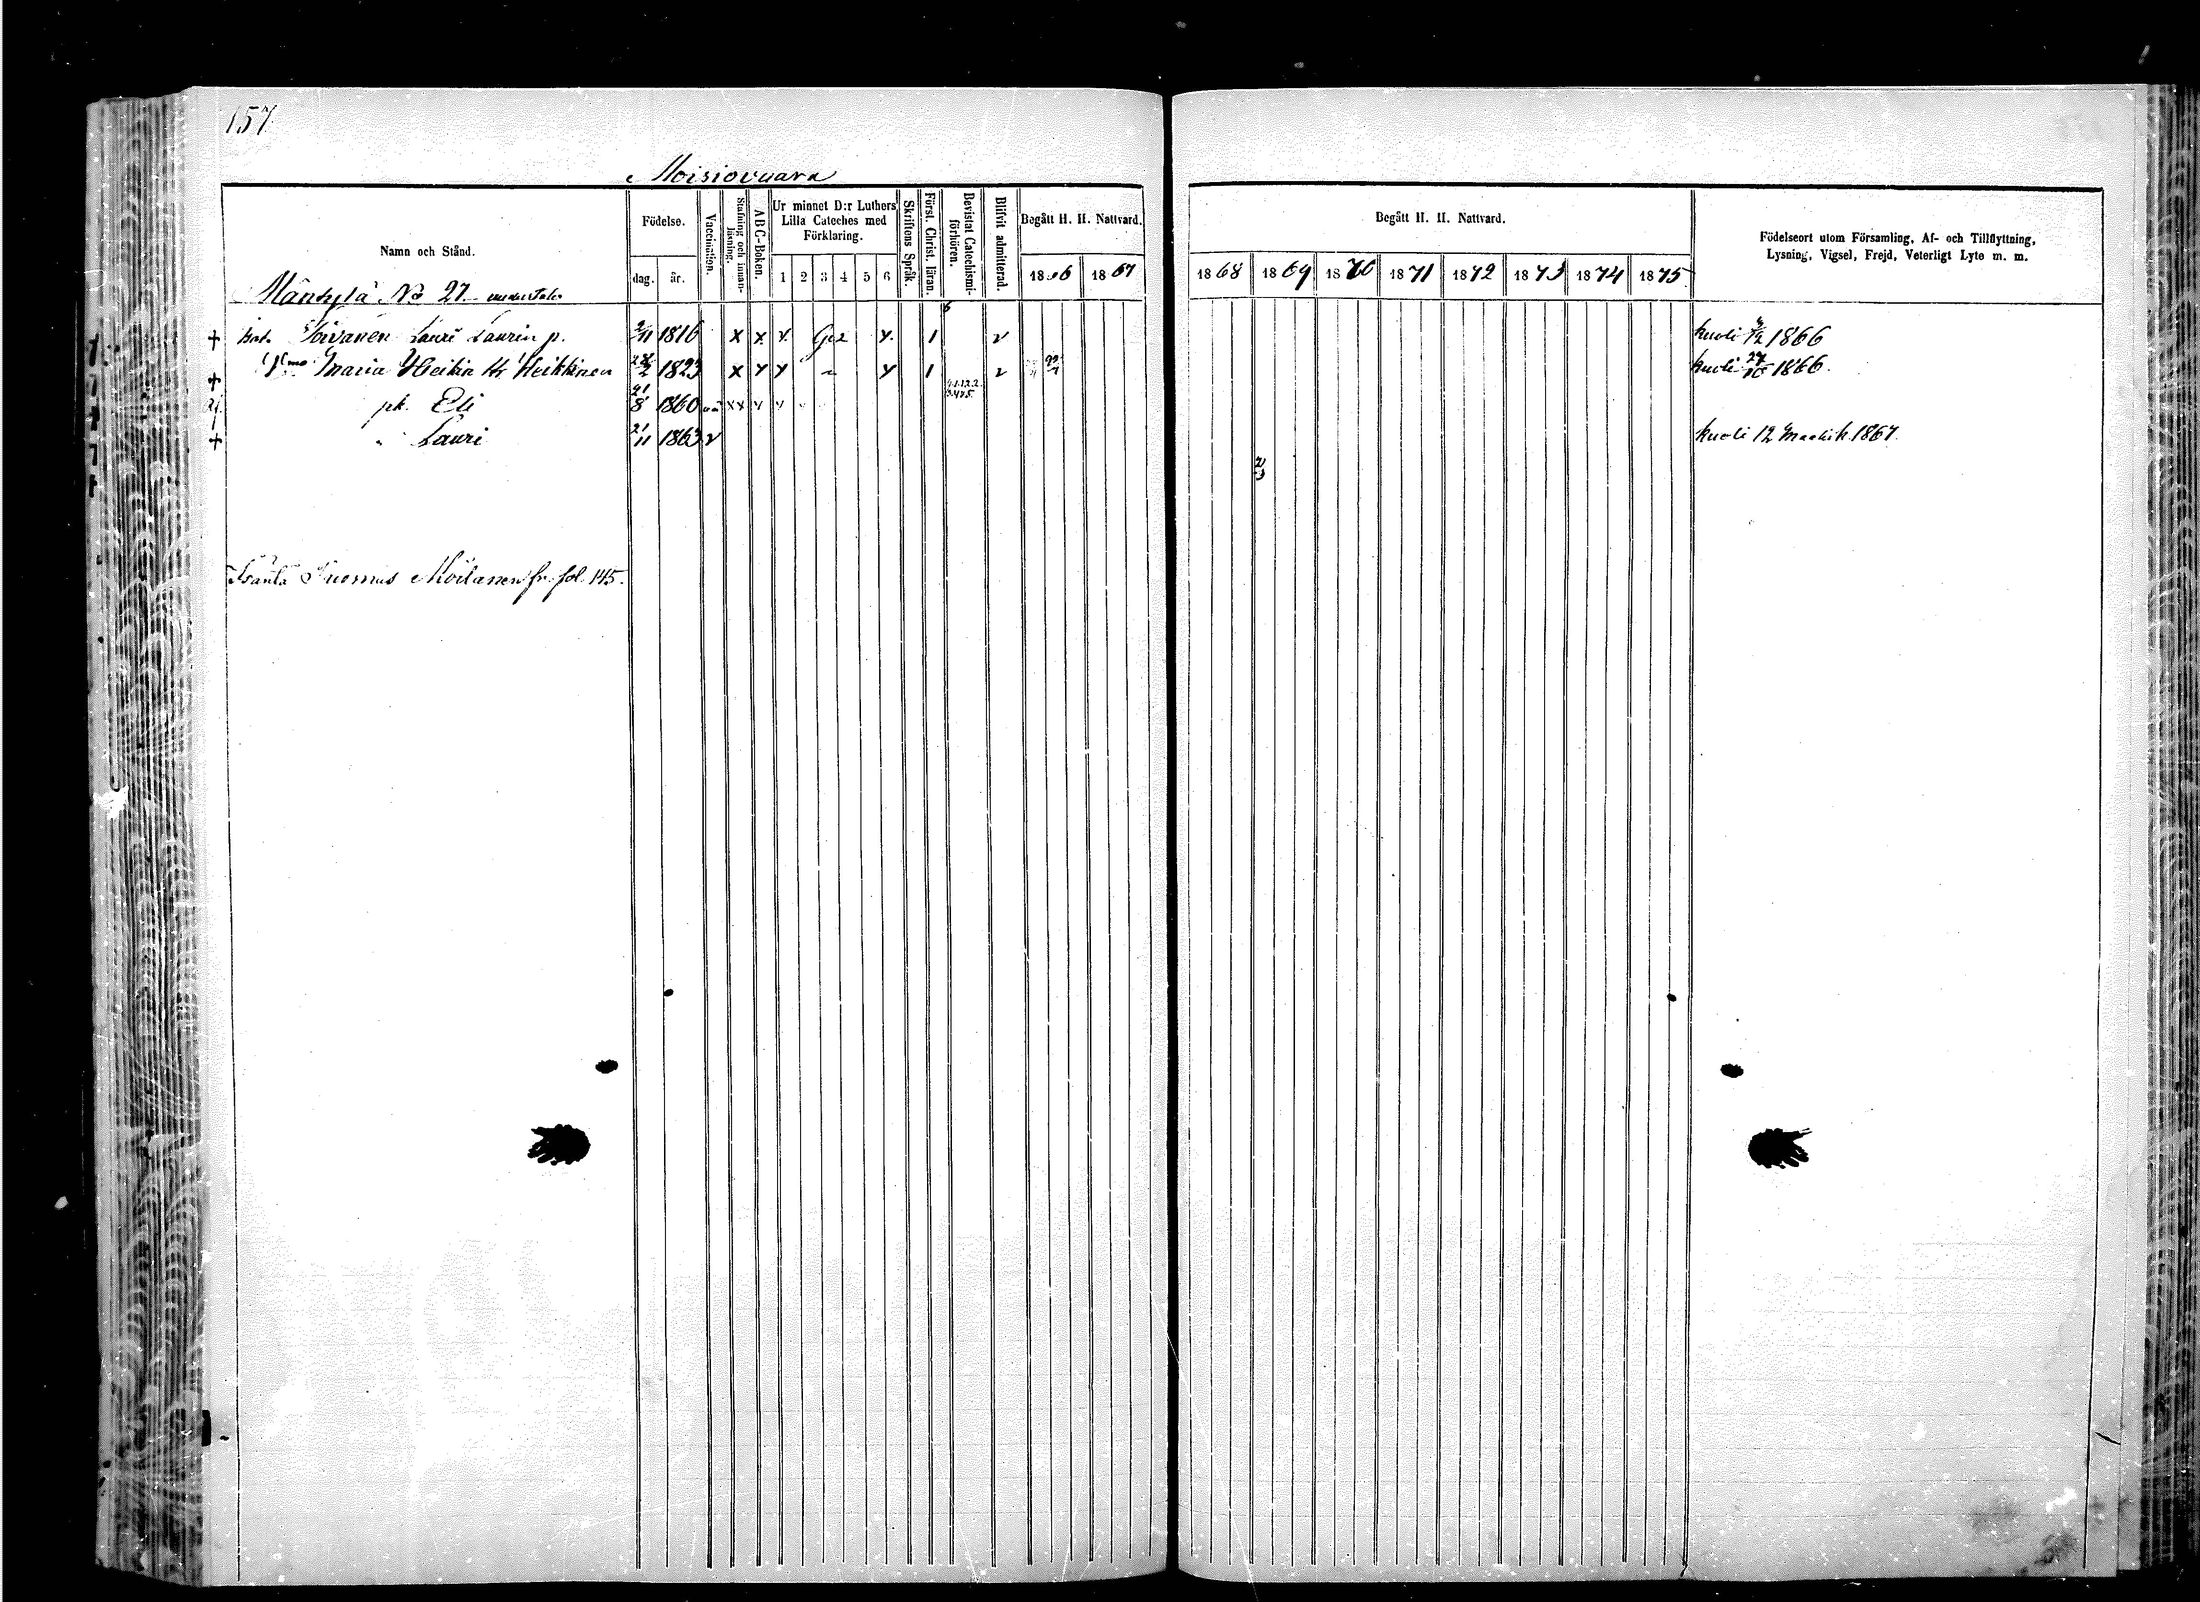 157
Moisiovaara
Namn och Stånd.
Födelse.
dag. år.
Vaccination.
Stafning och innan-läsning.
ABC-Boken.
Ur minnet D:r Luthers
Lilla Cateches med
Förklaring.
1 2 3 4 5 6
Skriftens Språk.
Först. Christ. läran.
Bevistat Catechismi-förhören.
Blifvit admitterad.
Begått H. H. Nattvard.
1866 1867
Begått H. H. Nattvard.
1868 1869 1870 1871 1872 1873 1874 1875
Födelseort utom Församling, Af- och Tillflyttning,
Lysning, Vigsel, Frejd, Veterligt Lyte m. m.
Mäntylä No 27
+ Toivanen Lauri Laurin p. 2/11 1816 x x 1 v kuoli 1866
+ Maria Heikin tr Heikkinen 1823 x v 1 v kuoli 27/10 1866.
pk. Eli 21/8 1860
+ " Lauri 21/11 1863 v kuoli 12 Maalisk. 1867.
Isäntä Tuomas Moilanen fr. fol. 145.